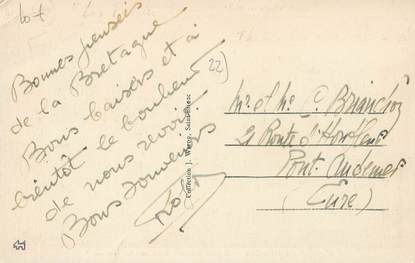 Bonnes pensées
de la Bretagne
Bons baisers et à
bientôt le bonheur
de nous revoir
Bons souvenirs
22)
Collection J.
Mr et Me C. Brianchon
21 Route d'Honfleur
Pont Audemer
(Eure)